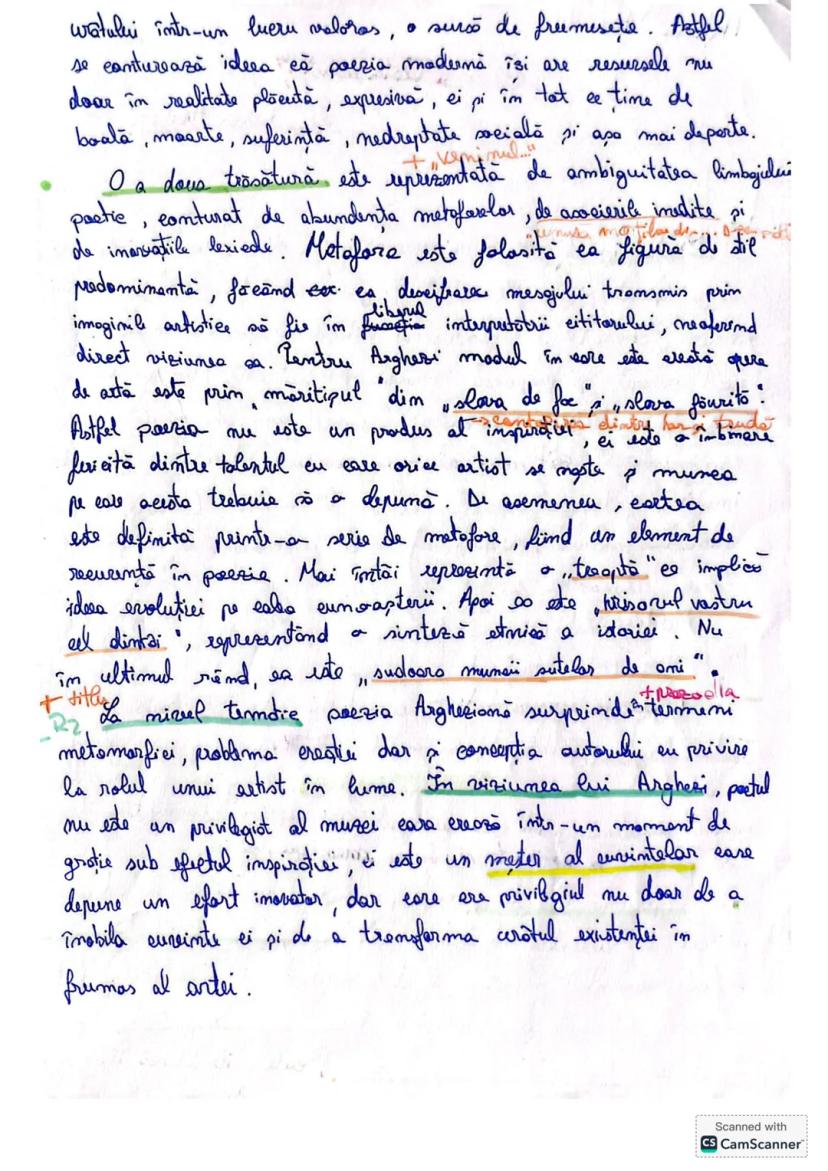 urâtului într-un lucru valoros, o sursă de frumusețe. Astfel
se conturează ideea că poezia modernă își are resursele nu
doar în realitate plăcută, expresivă, ci și în tot ce ține de
boală, moarte, suferință, nedreptate socială și așa mai departe.
+ „veninul..."
O a doua trăsătură este reprezentată de ambiguitatea limbajului
poetic, conturat de abundența metaforelor, de asocierile inedite și
"cenușa morților din...
de inovațiile lexicale. Metafora este folosită ca figură de stil
predominantă, făcând ca descifrarea mesajului transmis prin
liberul
imaginile artistice să fie în funcția interpretării cititorului, neoferind
direct viziunea sa. Pentru Arghezi modul în care este creată opera
de artă este prin măritișul "din „slova de foc" și „slova făurită".
→ contopirea dintre har și trudă
Astfel poezia nu este un produs al inspirației, ci este o îmbinare
fericită dintre talentul cu care orice artist se naște și munca
pe care acesta trebuie să o depună. De asemenea, cartea
este definită printr-o serie de metafore, fiind un element de
recurență în poezie. Mai întâi reprezintă o „treaptă" ce implică
ideea evoluției pe calea cunoașterii. Apoi ea este „hrisovul vostru
cel dintâi", reprezentând o sinteză etnică a istoriei. Nu
în ultimul rând, ea este „sudoarea muncii sutelor de ani".
+ titlu
+ prozodia
- R2
La nivel tematic poezia Argheziană surprinde în termeni
metamorfici, problema creației dar și concepția autorului cu privire
la rolul unui artist în lume. În viziunea lui Arghezi, poetul
nu este un privilegiat al muzei care crează într-un moment de
grație sub efectul inspirației, ci este un meșter al cuvintelor care
depune un efort inovator, dar care are privilegiul nu doar de a
înobila cuvinte ci și de a transforma urâtul existenței în
frumos al artei.
Scanned with
CS CamScanner